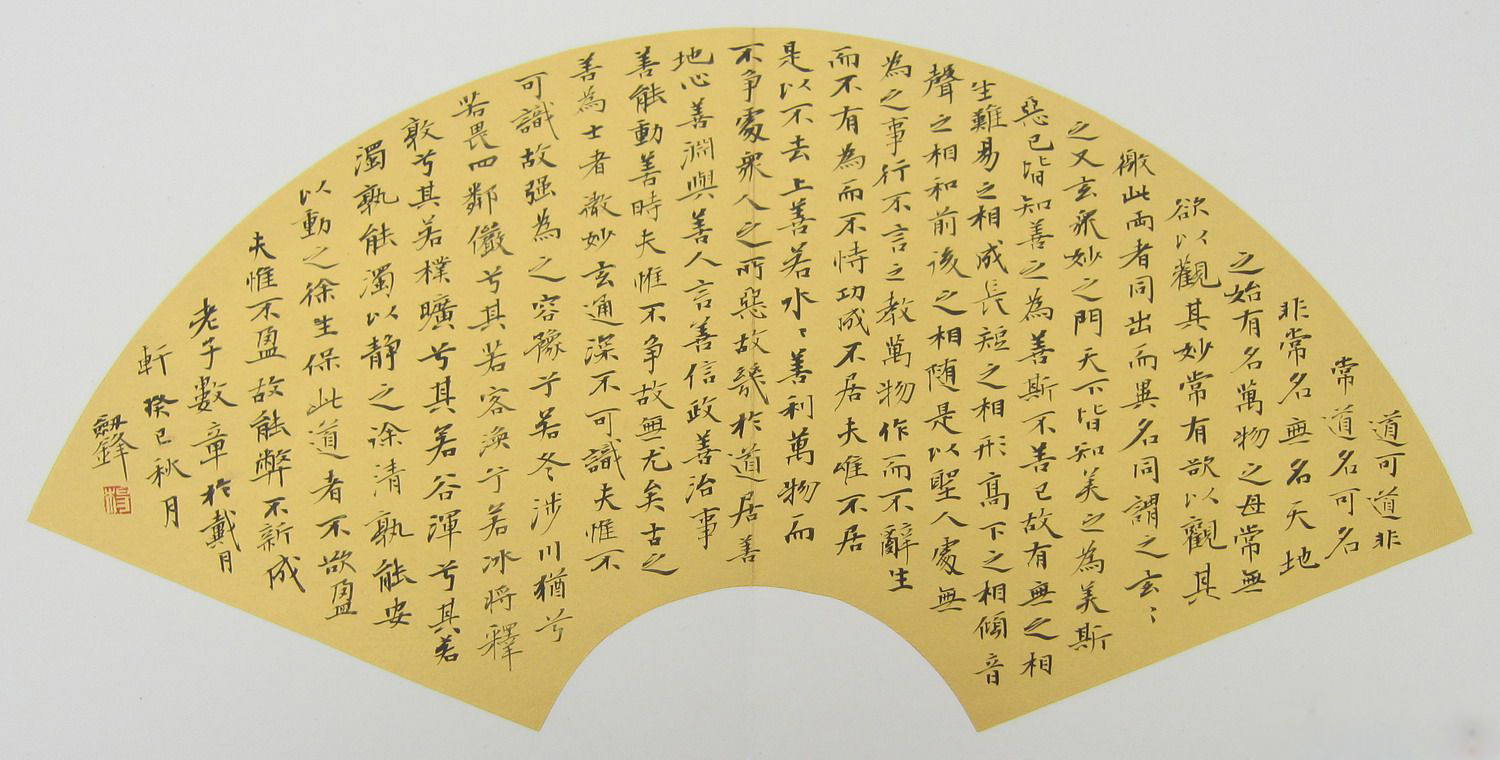 道可道非
常道名可名
非常名無名天地
之始有名萬物之母常無
欲以觀其妙常有欲以觀其
徼此兩者同出而異名同謂之玄〻
之又玄衆妙之門天下皆知美之為美斯
惡已皆知善之為善斯不善已故有無之相
生難易之相成長短之相形高下之相傾音
聲之相和前後之相随是以聖人處無
為之事行不言之教萬物作而不辭生
而不有為而不恃功成不居夫唯不居
是以不去上善若水〻善利萬物而
不争處衆人之所惡故幾於道居善
地心善淵與善人言善信政善治事
善能動善時夫惟不争故無尤矣古之
善為士者微妙玄通深不可識夫惟不
可識故强為之容豫兮若冬涉川猶兮
若畏四鄰儼兮其若客渙兮若冰將釋
敦兮其若樸曠兮其若谷渾兮其若
濁孰能濁以静之徐清孰能安
以動之徐生保此道者不欲盈
夫惟不盈故能弊不新成
老子數章於戴月
軒癸巳秋月
劔鋒
楊